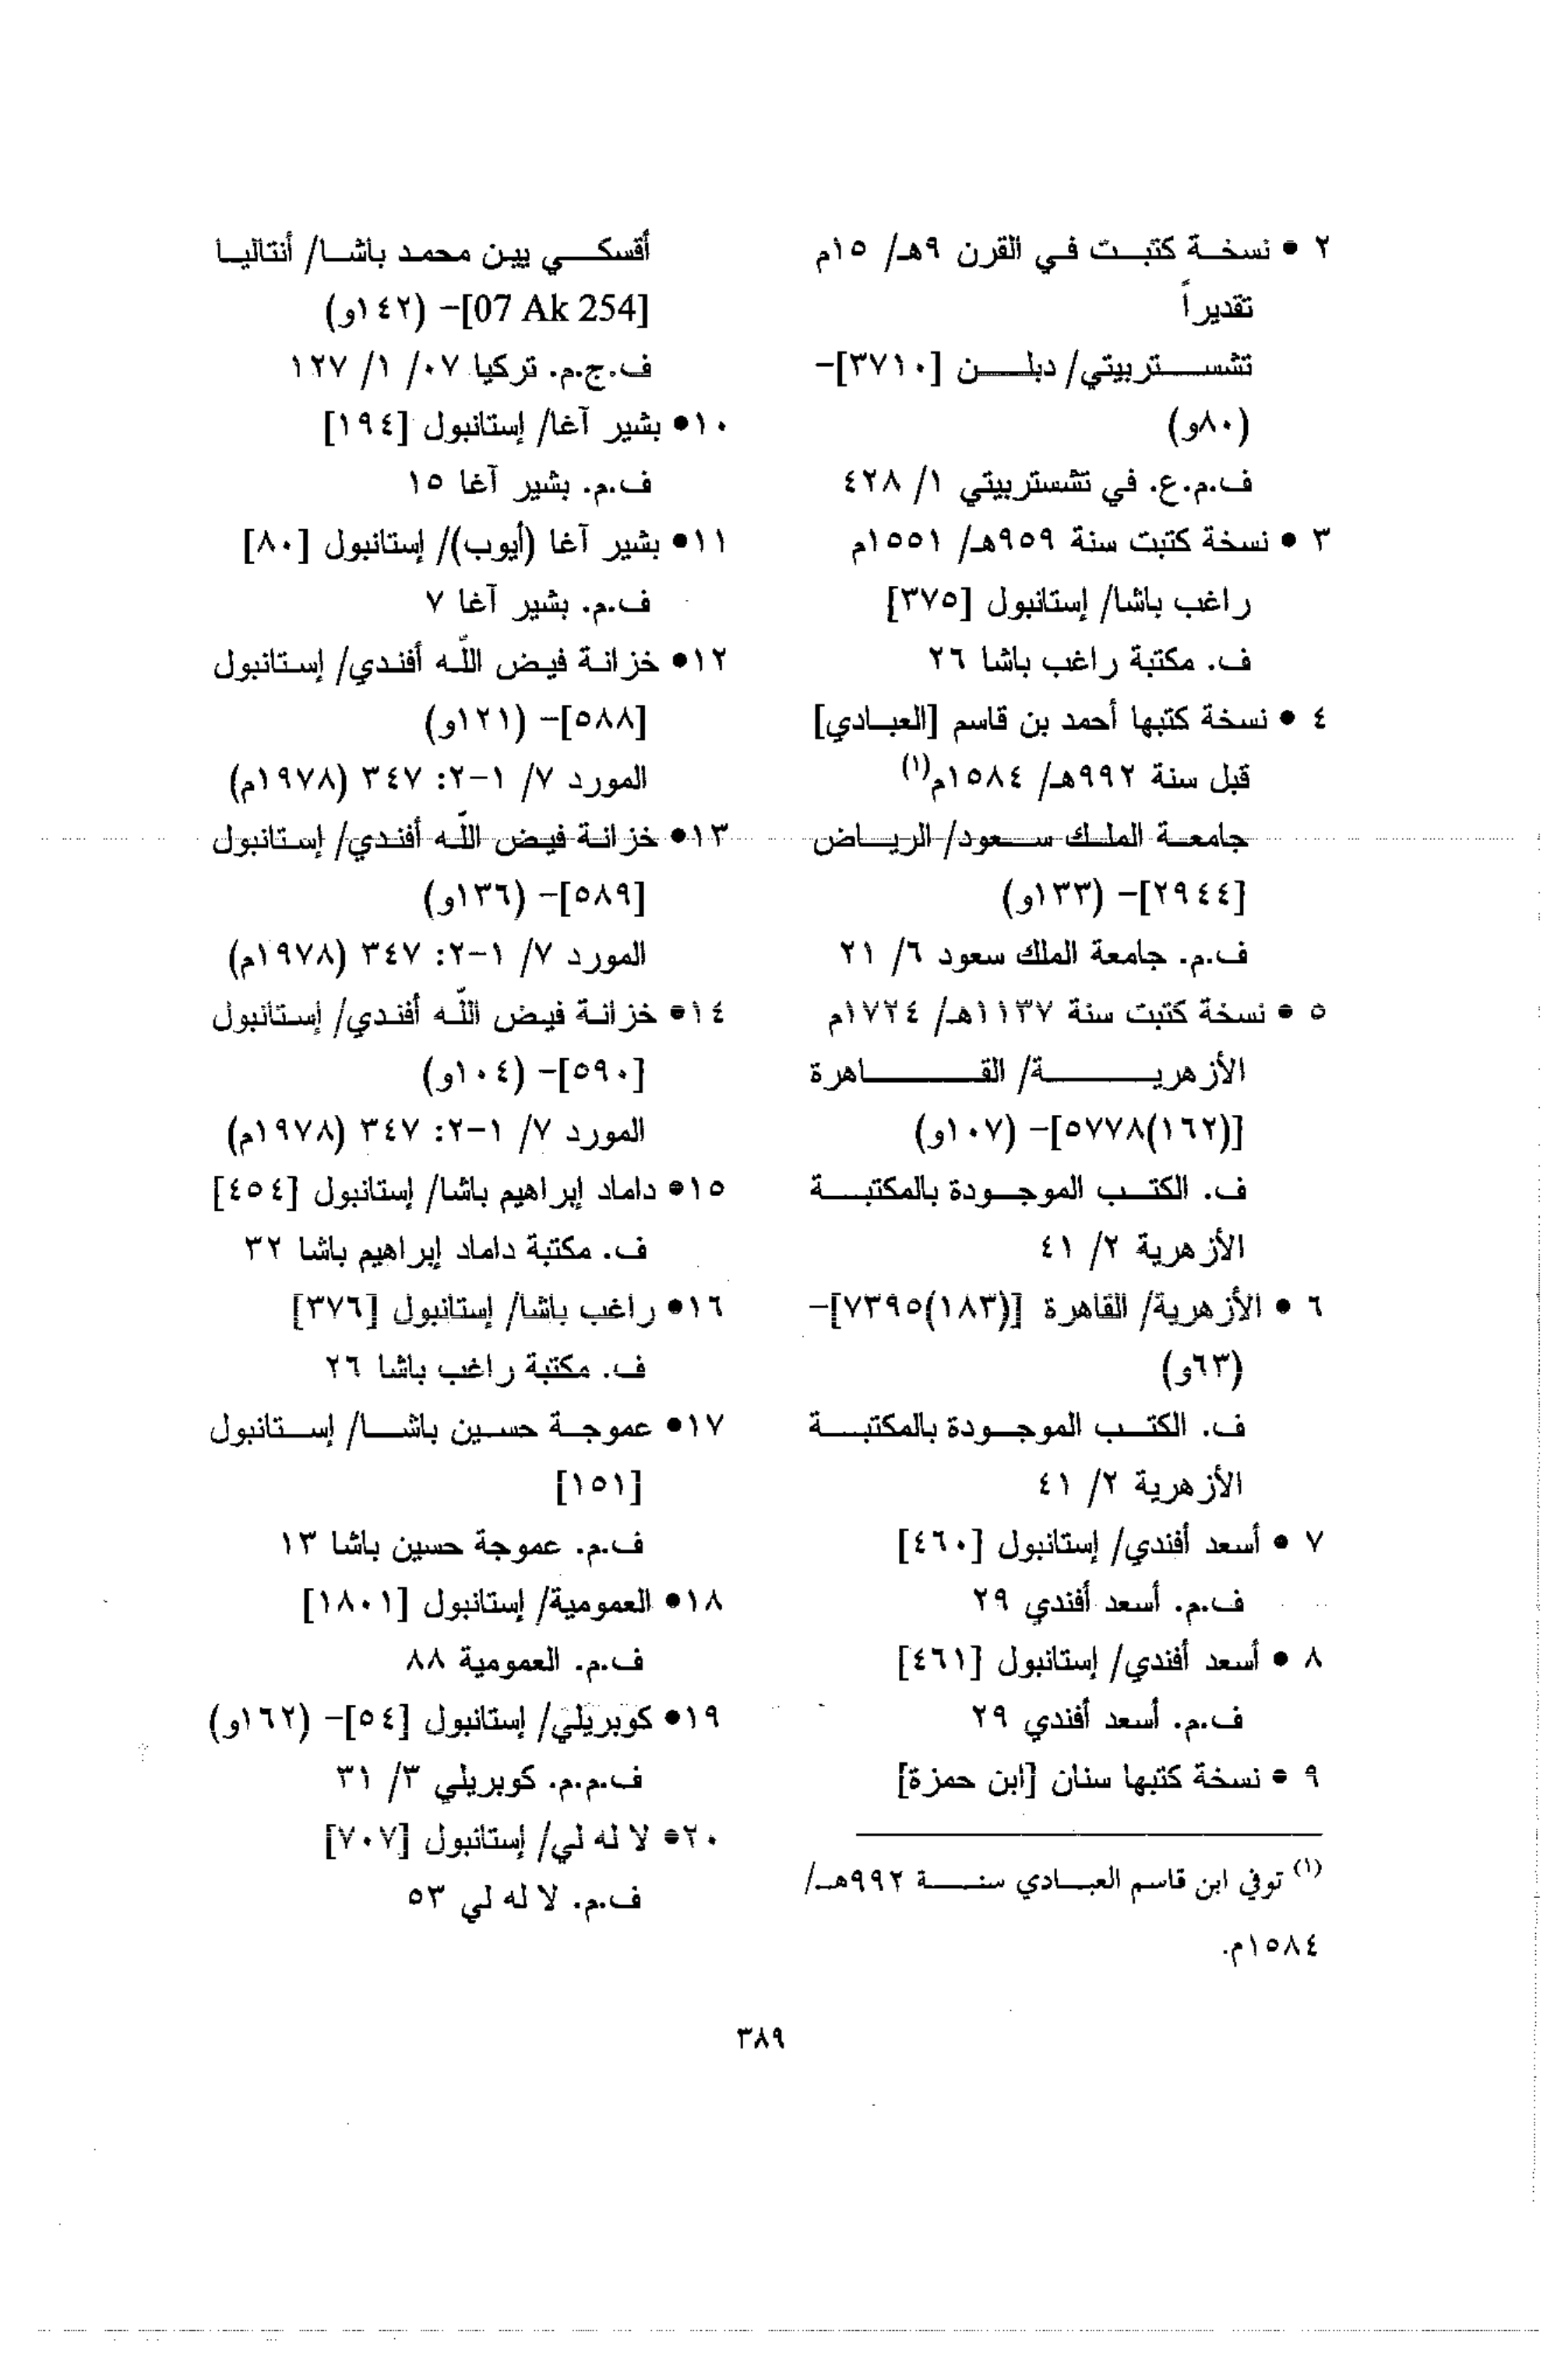 ٢ • نسخة كتبت في القرن ٩هـ/ ١٥م
تقديراً
تشستربيتي/ دبلن [٣٧١٠]-
(٨٠و)
ف.م.ع. في تشستربيتي ١/ ٤٢٨
٣ • نسخة كتبت سنة ٩٥٩هـ/ ١٥٥١م
راغب باشا/ إستانبول [٣٧٥]
ف. مكتبة راغب باشا ٢٦
٤ • نسخة كتبها أحمد بن قاسم [العبادي]
قبل سنة ٩٩٢هـ/ ١٥٨٤م(١)
جامعة الملك سعود/ الرياض
[٢٩٤٤]- (١٣٣و)
ف.م. جامعة الملك سعود ٦/ ٢١
٥ • نسخة كتبت سنة ١١٣٧هـ/ ١٧٢٤م
الأزهرية/ القاهرة
[(١٦٢)٥٧٧٨]- (١٠٧و)
ف. الكتب الموجودة بالمكتبة
الأزهرية ٢/ ٤١
٦ • الأزهرية/ القاهرة [(١٨٣)٧٣٩٥]-
(٦٣و)
ف. الكتب الموجودة بالمكتبة
الأزهرية ٢/ ٤١
٧ • أسعد أفندي/ إستانبول [٤٦٠]
ف.م. أسعد أفندي ٢٩
٨ • أسعد أفندي/ إستانبول [٤٦١]
ف.م. أسعد أفندي ٢٩
٩ • نسخة كتبها سنان [ابن حمزة]
(١) توفي ابن قاسم العبادي سنة ٩٩٢هـ/
١٥٨٤م.
أقسكي يين محمد باشا/ أنتاليا
[07 Ak 254]- (١٤٢و)
ف.ج.م. تركيا ٠٧/ ١/ ١٢٧
١٠• بشير آغا/ إستانبول [١٩٤]
ف.م. بشير آغا ١٥
١١• بشير آغا (أيوب)/ إستانبول [٨٠]
ف.م. بشير آغا ٧
١٢• خزانة فيض اللّه أفندي/ إستانبول
[٥٨٨]- (١٢١و)
المورد ٧/ ١-٢: ٣٤٧ (١٩٧٨م)
١٣• خزانة فيض اللّه أفندي/ إستانبول
[٥٨٩]- (١٣٦و)
المورد ٧/ ١-٢: ٣٤٧ (١٩٧٨م)
١٤• خزانة فيض اللّه أفندي/ إستانبول
[٥٩٠]- (١٠٤و)
المورد ٧/ ١-٢: ٣٤٧ (١٩٧٨م)
١٥• داماد إبراهيم باشا/ إستانبول [٤٥٤]
ف. مكتبة داماد إبراهيم باشا ٣٢
١٦• راغب باشا/ إستانبول [٣٧٦]
ف. مكتبة راغب باشا ٢٦
١٧• عموجة حسين باشا/ إستانبول
[١٥١]
ف.م. عموجة حسين باشا ١٣
١٨• العمومية/ إستانبول [١٨٠١]
ف.م. العمومية ٨٨
١٩• كوبريلي/ إستانبول [٥٤]- (١٦٢و)
ف.م.م. كوبريلي ٣/ ٣١
٢٠• لا له لي/ إستانبول [٧٠٧]
ف.م. لا له لي ٥٣
٣٨٩